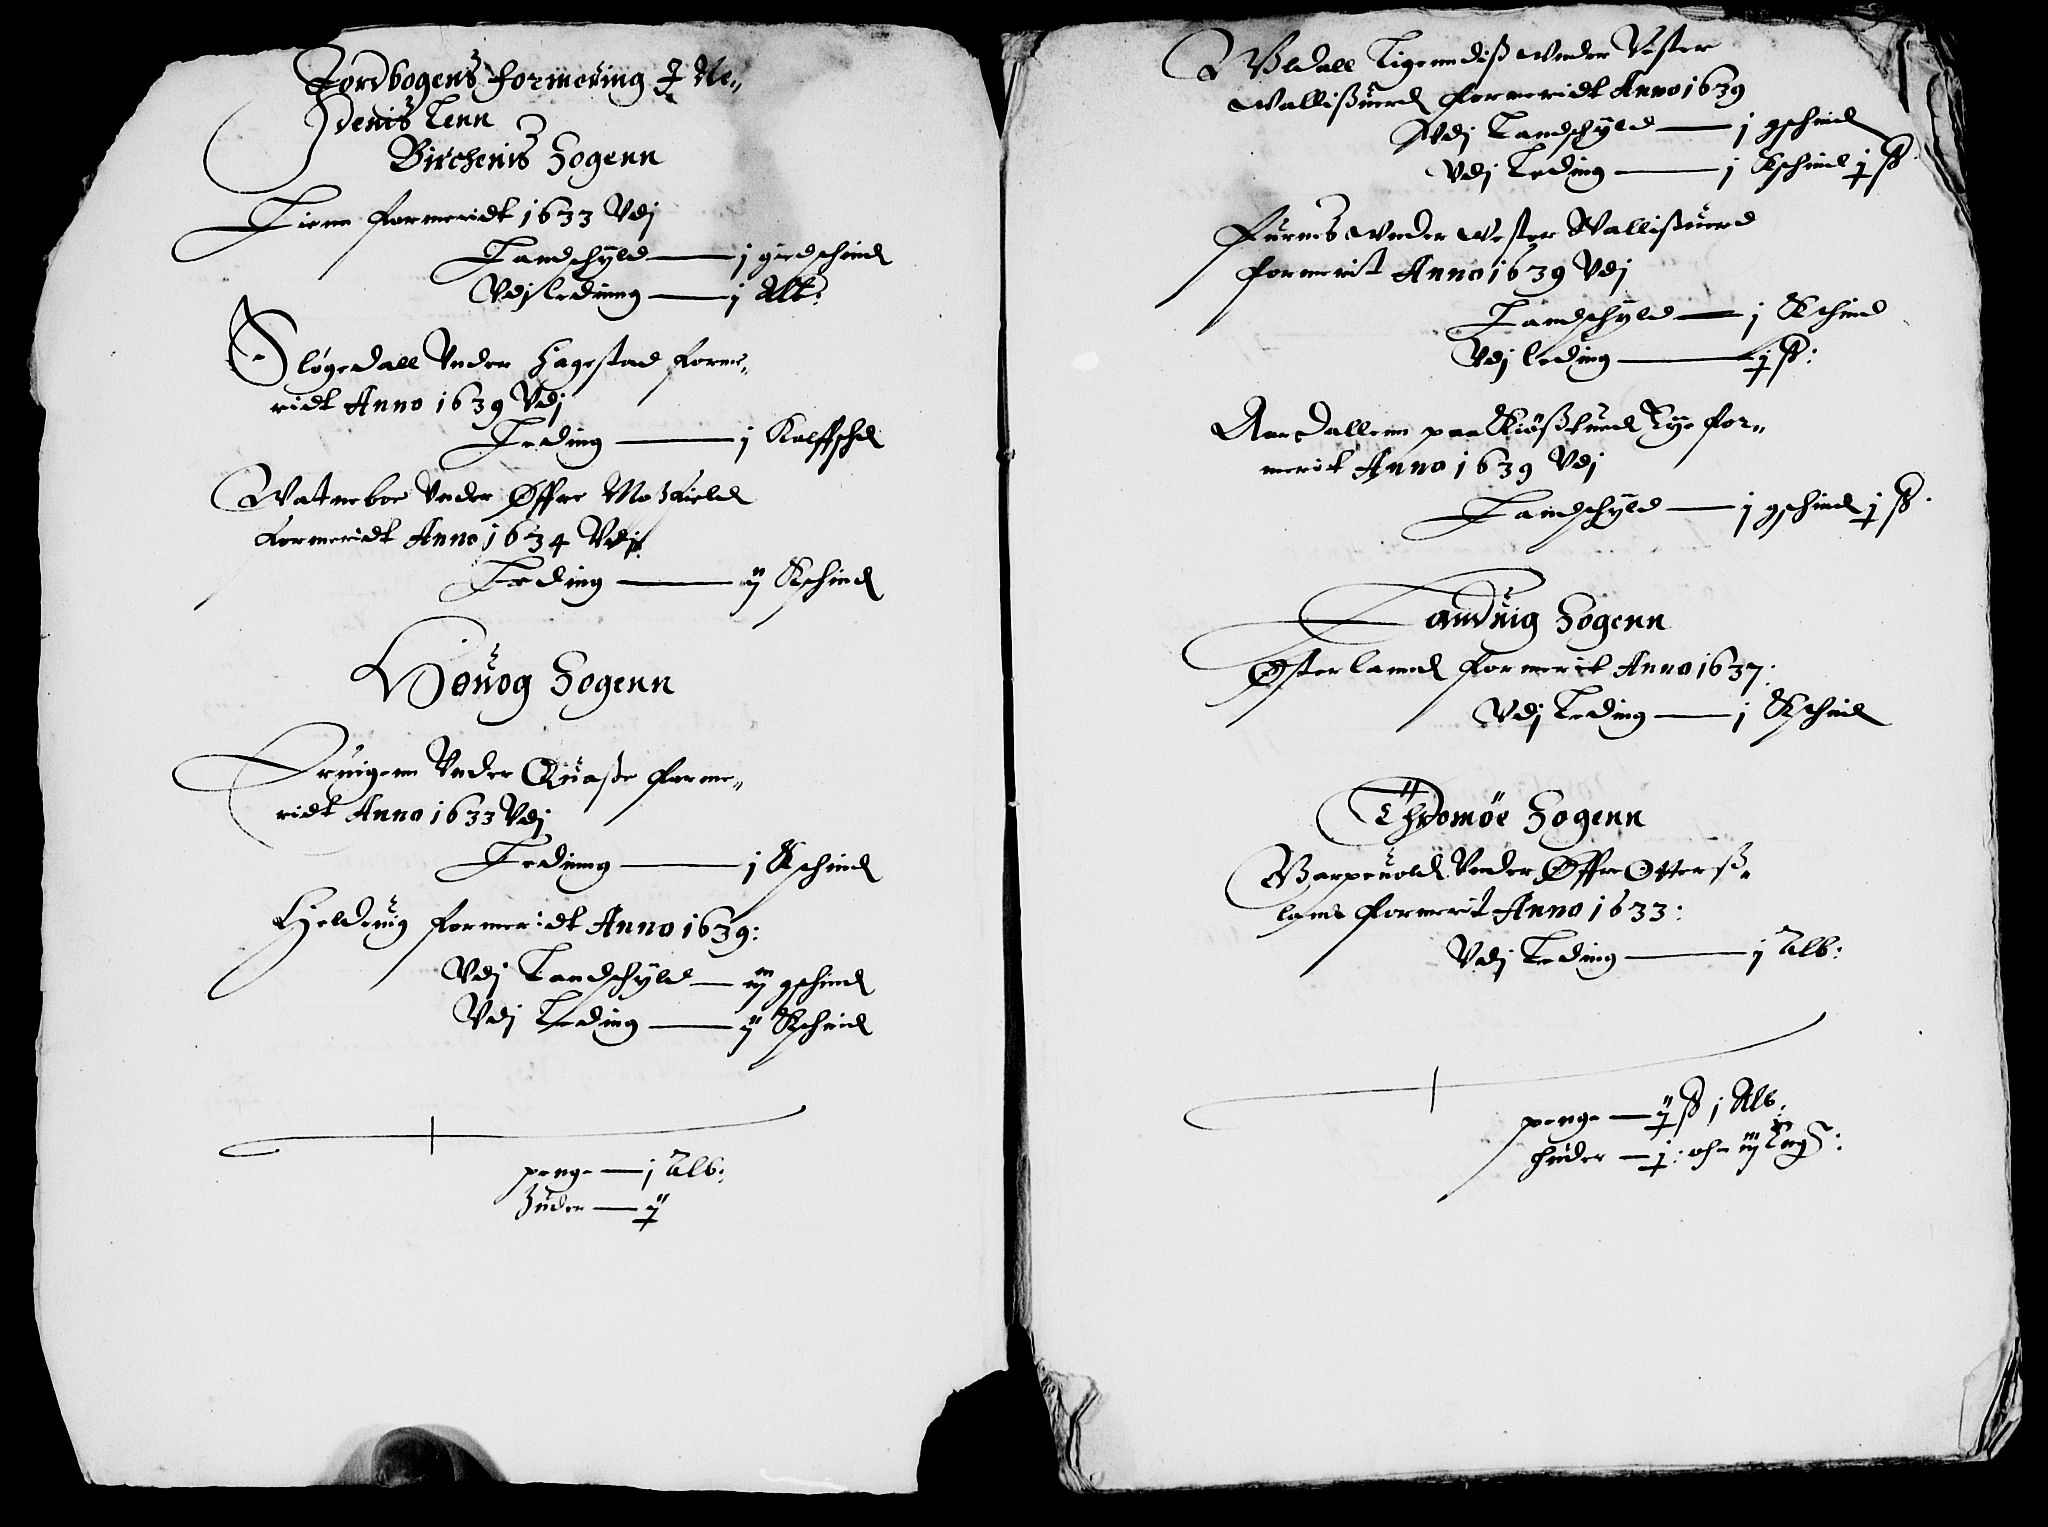 Jordbogens formering J Ne„
denis Lenn
Birchenis Sogenn
Tienn formeridt 1633 Vdj
Landschyld — j giedschind
Vdj leding — j Alb:
Sløgedall Vnder Hagestad forme„
ridt Anno 1639 Vdj
Leding — j Kalffschd
Watneboe Vnder Øffre Moßfield
formeridt Anno 1634 Vdj
Leding — ij Kschind
Høuog Sogenn
Vnder Quaße forme„
ridt Anno 1633 Vdj
Leding — j Kschind
Heldeuig formeridt Anno 1639:
Vdj Landschyld — iij gschind
Vdj Leding — ij Kschind
penge — j Alb:
Huder — ij
Vldall Ligendiß Vnder Vester
Wallißuerd formeridt Anno 1639
Vdj Landschyld — j gschind
Vdj Leding — j Kschind j ß
Furnes Vnder Wester Wallißuerd
formerit Anno 1639 Vdj
Landschyld — j Kschind
Vdj leding — j ß:
Aasdallenn paa Lye for„
merit Anno 1639 Vdj
Landschyld — j gschind j ß.
Landuig Sogenn
Østerlannd formerit Anno 1637:
Vdj Leding — j Kschind
Thromøe Sogenn
Garpeuold Vnder Øffre Otterß„
land formerit Anno 1633:
Vdj Leding — j Alb:
penge — ij ß j Alb:
huder — j: och iij